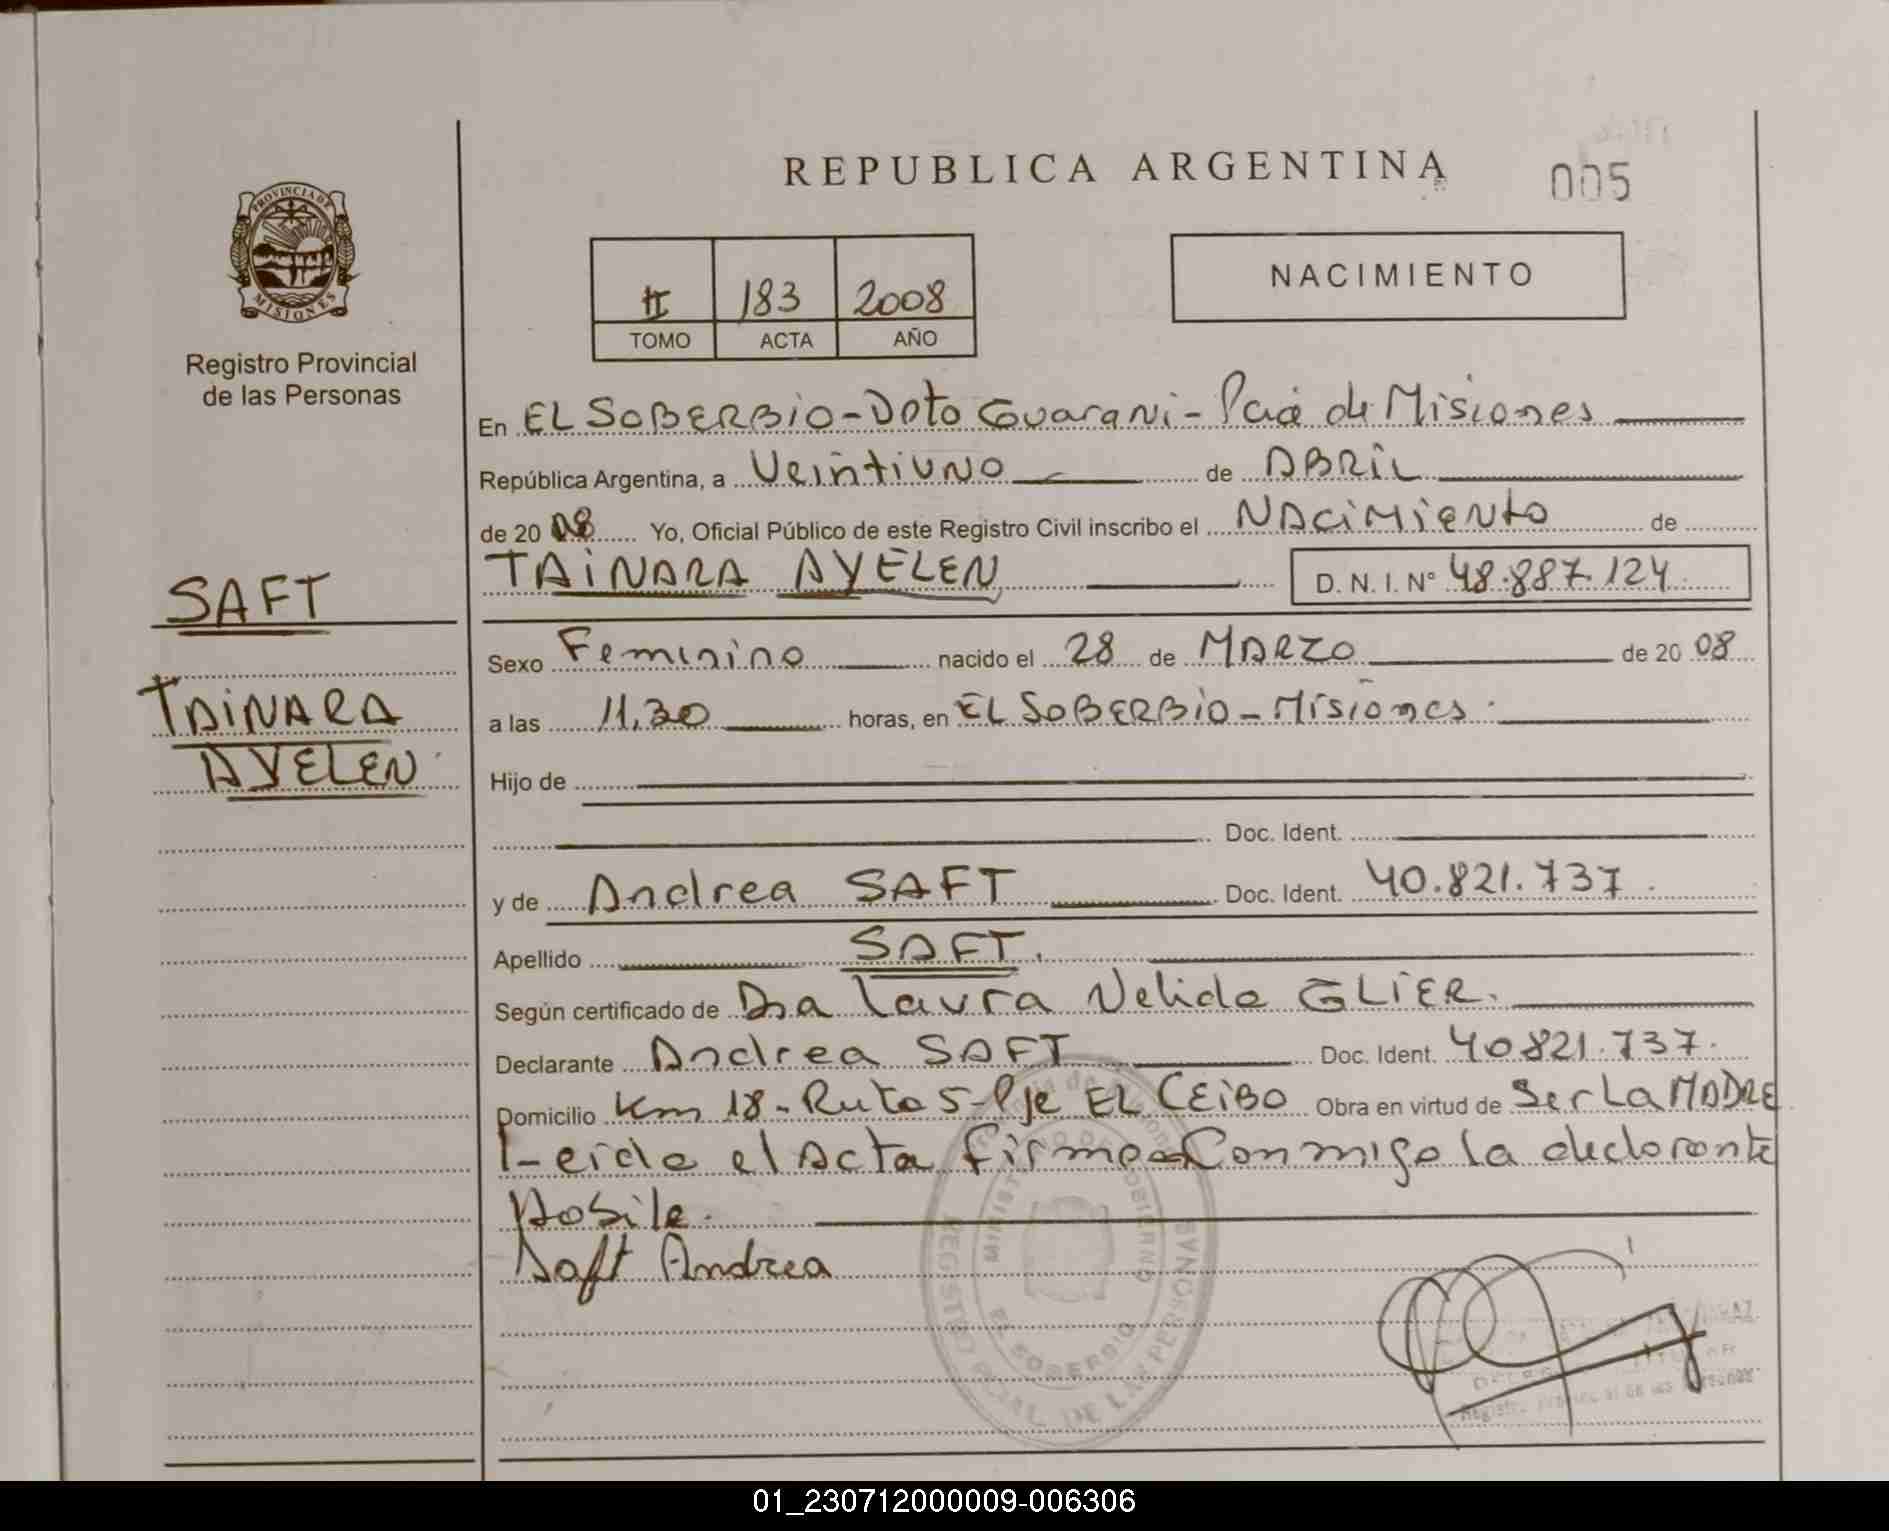 REPUBLICA ARGENTINA
005
PROVINCIA DE
MISIONES
Registro Provincial
de las Personas
II 183 2008
TOMO ACTA AÑO
NACIMIENTO
En EL SOBERBIO - Dpto Guarani - Pcia de Misiones
República Argentina, a Veintiuno de ABRIL
de 20 08 Yo, Oficial Público de este Registro Civil inscribo el NAciMiento de
TAINARA AYELEN D. N. I. N° 48.887.124
SAFT
TAINARA
AYELEN
Sexo Feminino nacido el 28 de MARZO de 20 08
a las 11,30 horas, en EL SOBERBIO - Misiones.
Hijo de
Doc. Ident.
y de Andrea SAFT Doc. Ident. 40.821.737.
Apellido SAFT.
Según certificado de Dra Laura Nelida GLIER.
Declarante Andrea SAFT Doc. Ident. 40821.737.
Domicilio Km 18 - Ruta 5 - Pje EL CEIBO Obra en virtud de Ser La MADRE
Leida el Acta Firma Conmigo la declarante
Saft Andrea
MINISTERIO DE GOBIERNO
REGISTRO PCIAL. DE LAS PERSONAS
EL SOBERBIO
01_230712000009-006306